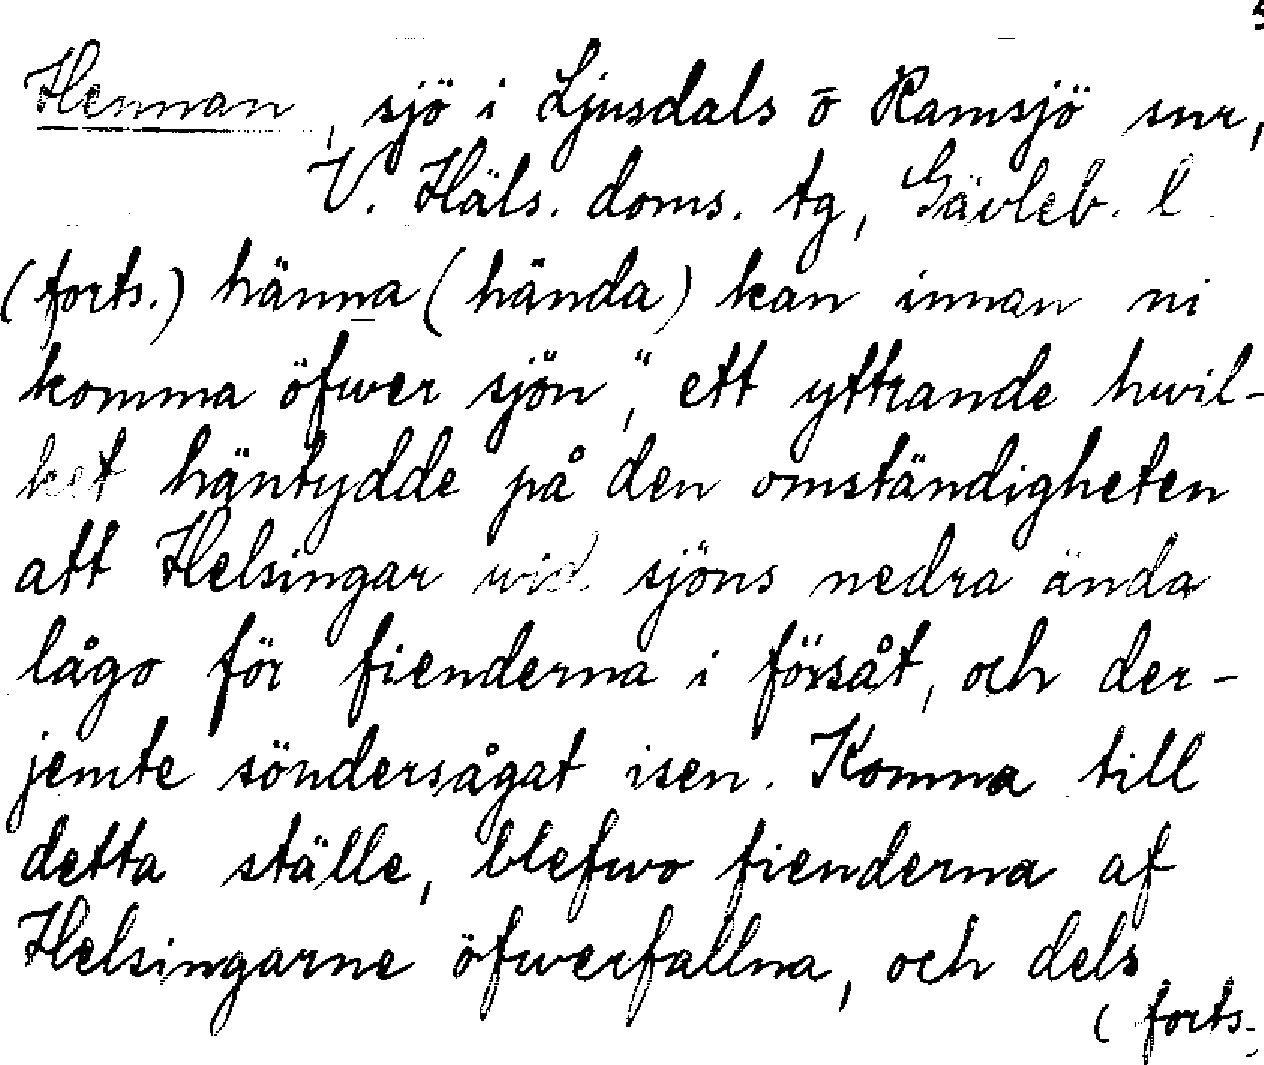 Hennan, sjö i Ljusdals o Ramsjö snr,
V. Häls. doms. tg, Gävleb. l.
(forts.) hänna (hända) kan innan ni
komma öfwer sjön", ett yttrande hwil-
ket häntydde på den omständigheten
att Helsingar wid sjöns nedra ända
lågo för fienderna i försåt, och der-
jemte söndersågat isen. Komna till
detta ställe, blefwo fienderna af
Helsingarne öfwerfallna, och dels
(forts.